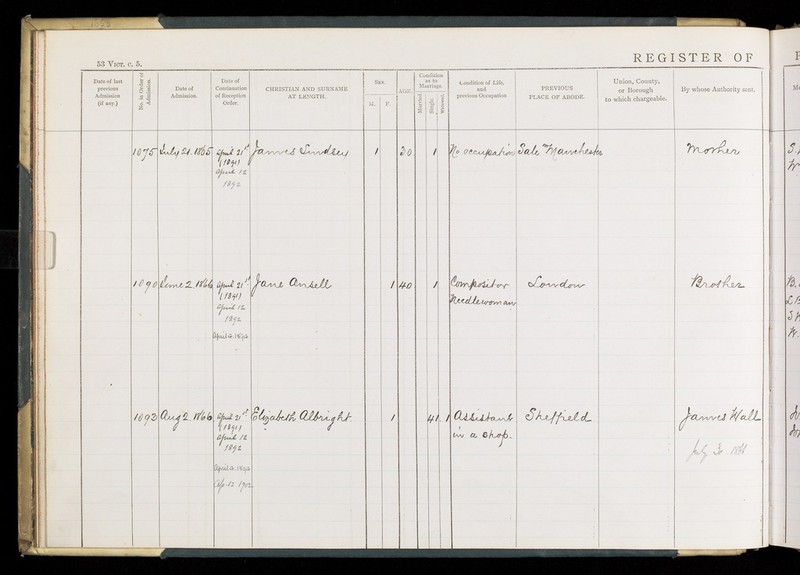 53 VICT. c. 5.
REGISTER OF
Date of last previous Admission (if any.)
No. in Order of Admission.
Date of Admission.
Date of Continuation of Reception Order.
CHRISTIAN AND SURNAME AT LENGTH.
SEX.
M.
F.
AGE.
Condition as to Marriage.
Married
Single.
Widowed.
Condition of Life, and previous Occupation
PREVIOUS PLACE OF ABODE.
Union, County, or Borough to which chargeable.
By whose Authority sent.
1075 July 21. 1865 April 21st James 1 30 1 No occupation Sale Manchester Mother
(1891)
April 12
1892
1090 June 2. 1866 April 21st Jane Ansell 1 40 1 Compositor London Brother
(1891) Needlewoman
April 12
1892
April 4. 1894
1093 Aug 2. 1866 April 21st Elizabeth Albright. 1 41. 1 Assistant Sheffield James Wall
(1891) in a shop.
April 12 July 30
1892
April 4. 1894
Ap. 12 1902